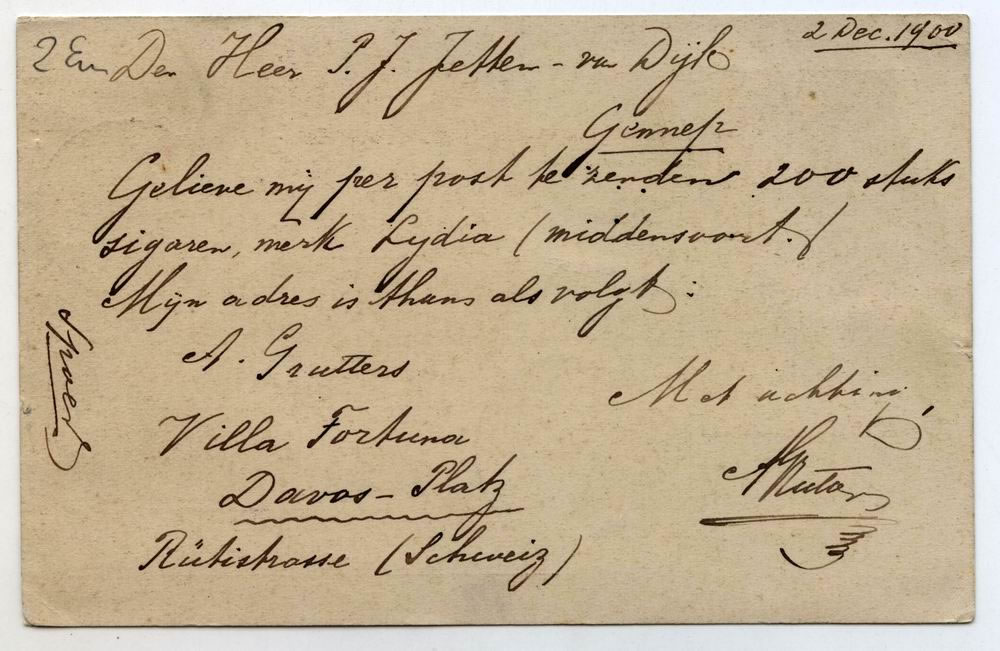 2 Dec. 1900
Den Heer P. J. Jetten - van Dijk
Gennep
Gelieve mij per post te zenden 200 stuks
sigaren, merk Lydia (middensoort.)
Mijn adres is thans als volgt:
A. Grutters
Villa Fortuna
Davos-Platz
Rütistrasse (Schweiz)
Met achting,
AGrutters
Spoed